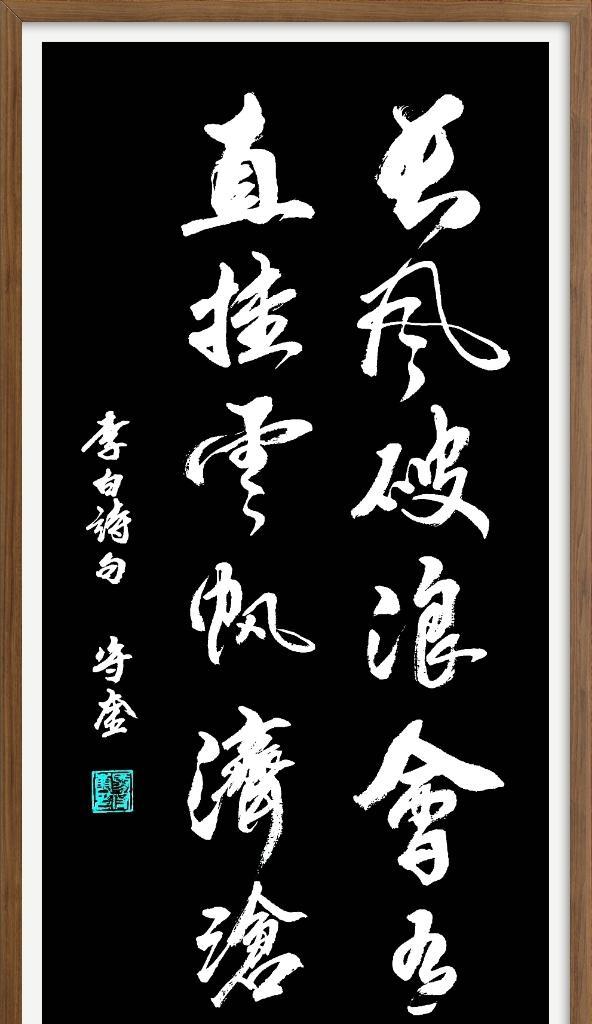 長風破浪會有
直挂雲帆濟滄
李白詩句